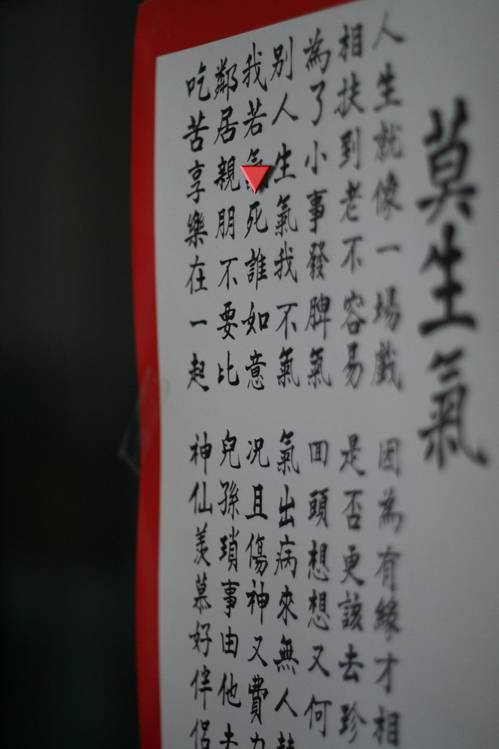 莫生氣
人生就像一場戲 因為有緣才相
相扶到老不容易 是否更該去珍
為了小事發脾氣 回頭想想又何
別人生氣我不氣 氣出病來無人替
我若氣死誰如意 況且傷神又費力
鄰居親朋不要比 兒孫瑣事由他去
吃苦享樂在一起 神仙羨慕好伴侶